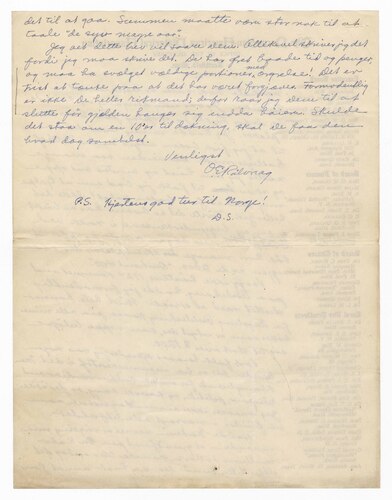 det til at gaa. Summen maatte være stor nok til at
taale "de syv magre aar".
Jeg vet dette brev vil saare dem. Allikevel skriver jeg det
fordi jeg maa skrive det. De har gjet baade tid og penger,
og maa ha svolget vældige portioner med ærgrelse! Det er
trist at tænke paa at det har været forgjæves. Formodentlig
er ikke De heller retmand; derfor raar jeg Dem til at
slette før gjælden hænger sig endda Skulde
det staa om en 10'er til dekning, skal De faa den
hvad dag somhelst.
Venligst
O E Rølvaag
P.S. Hjertens god tur til Norge!
D.S.